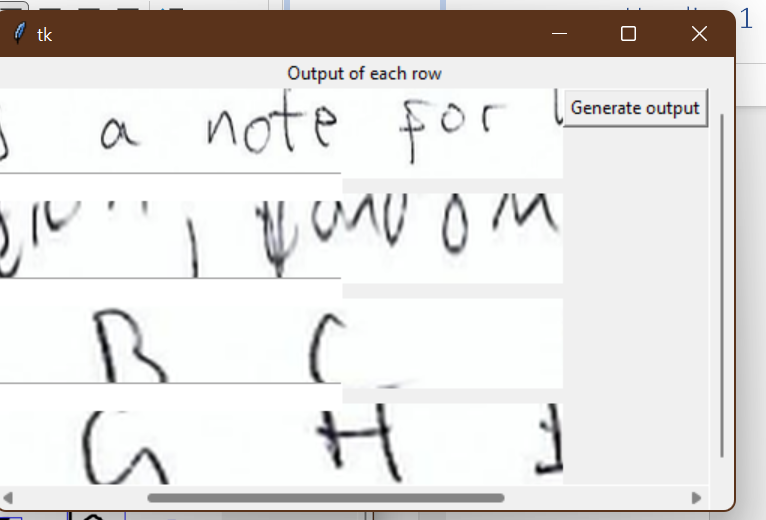 1
tk
Output of each row
Generate output
a note for
random
B C
G H I